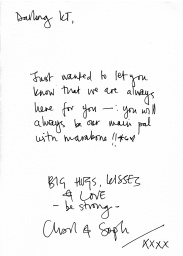 Darling KJ,
Just wanted to let you
know that we are always
here for you — you will
always be our main pal
with !!
BIG HUGS, KISSES
& LOVE
- be strong -
& Soph
xxxx